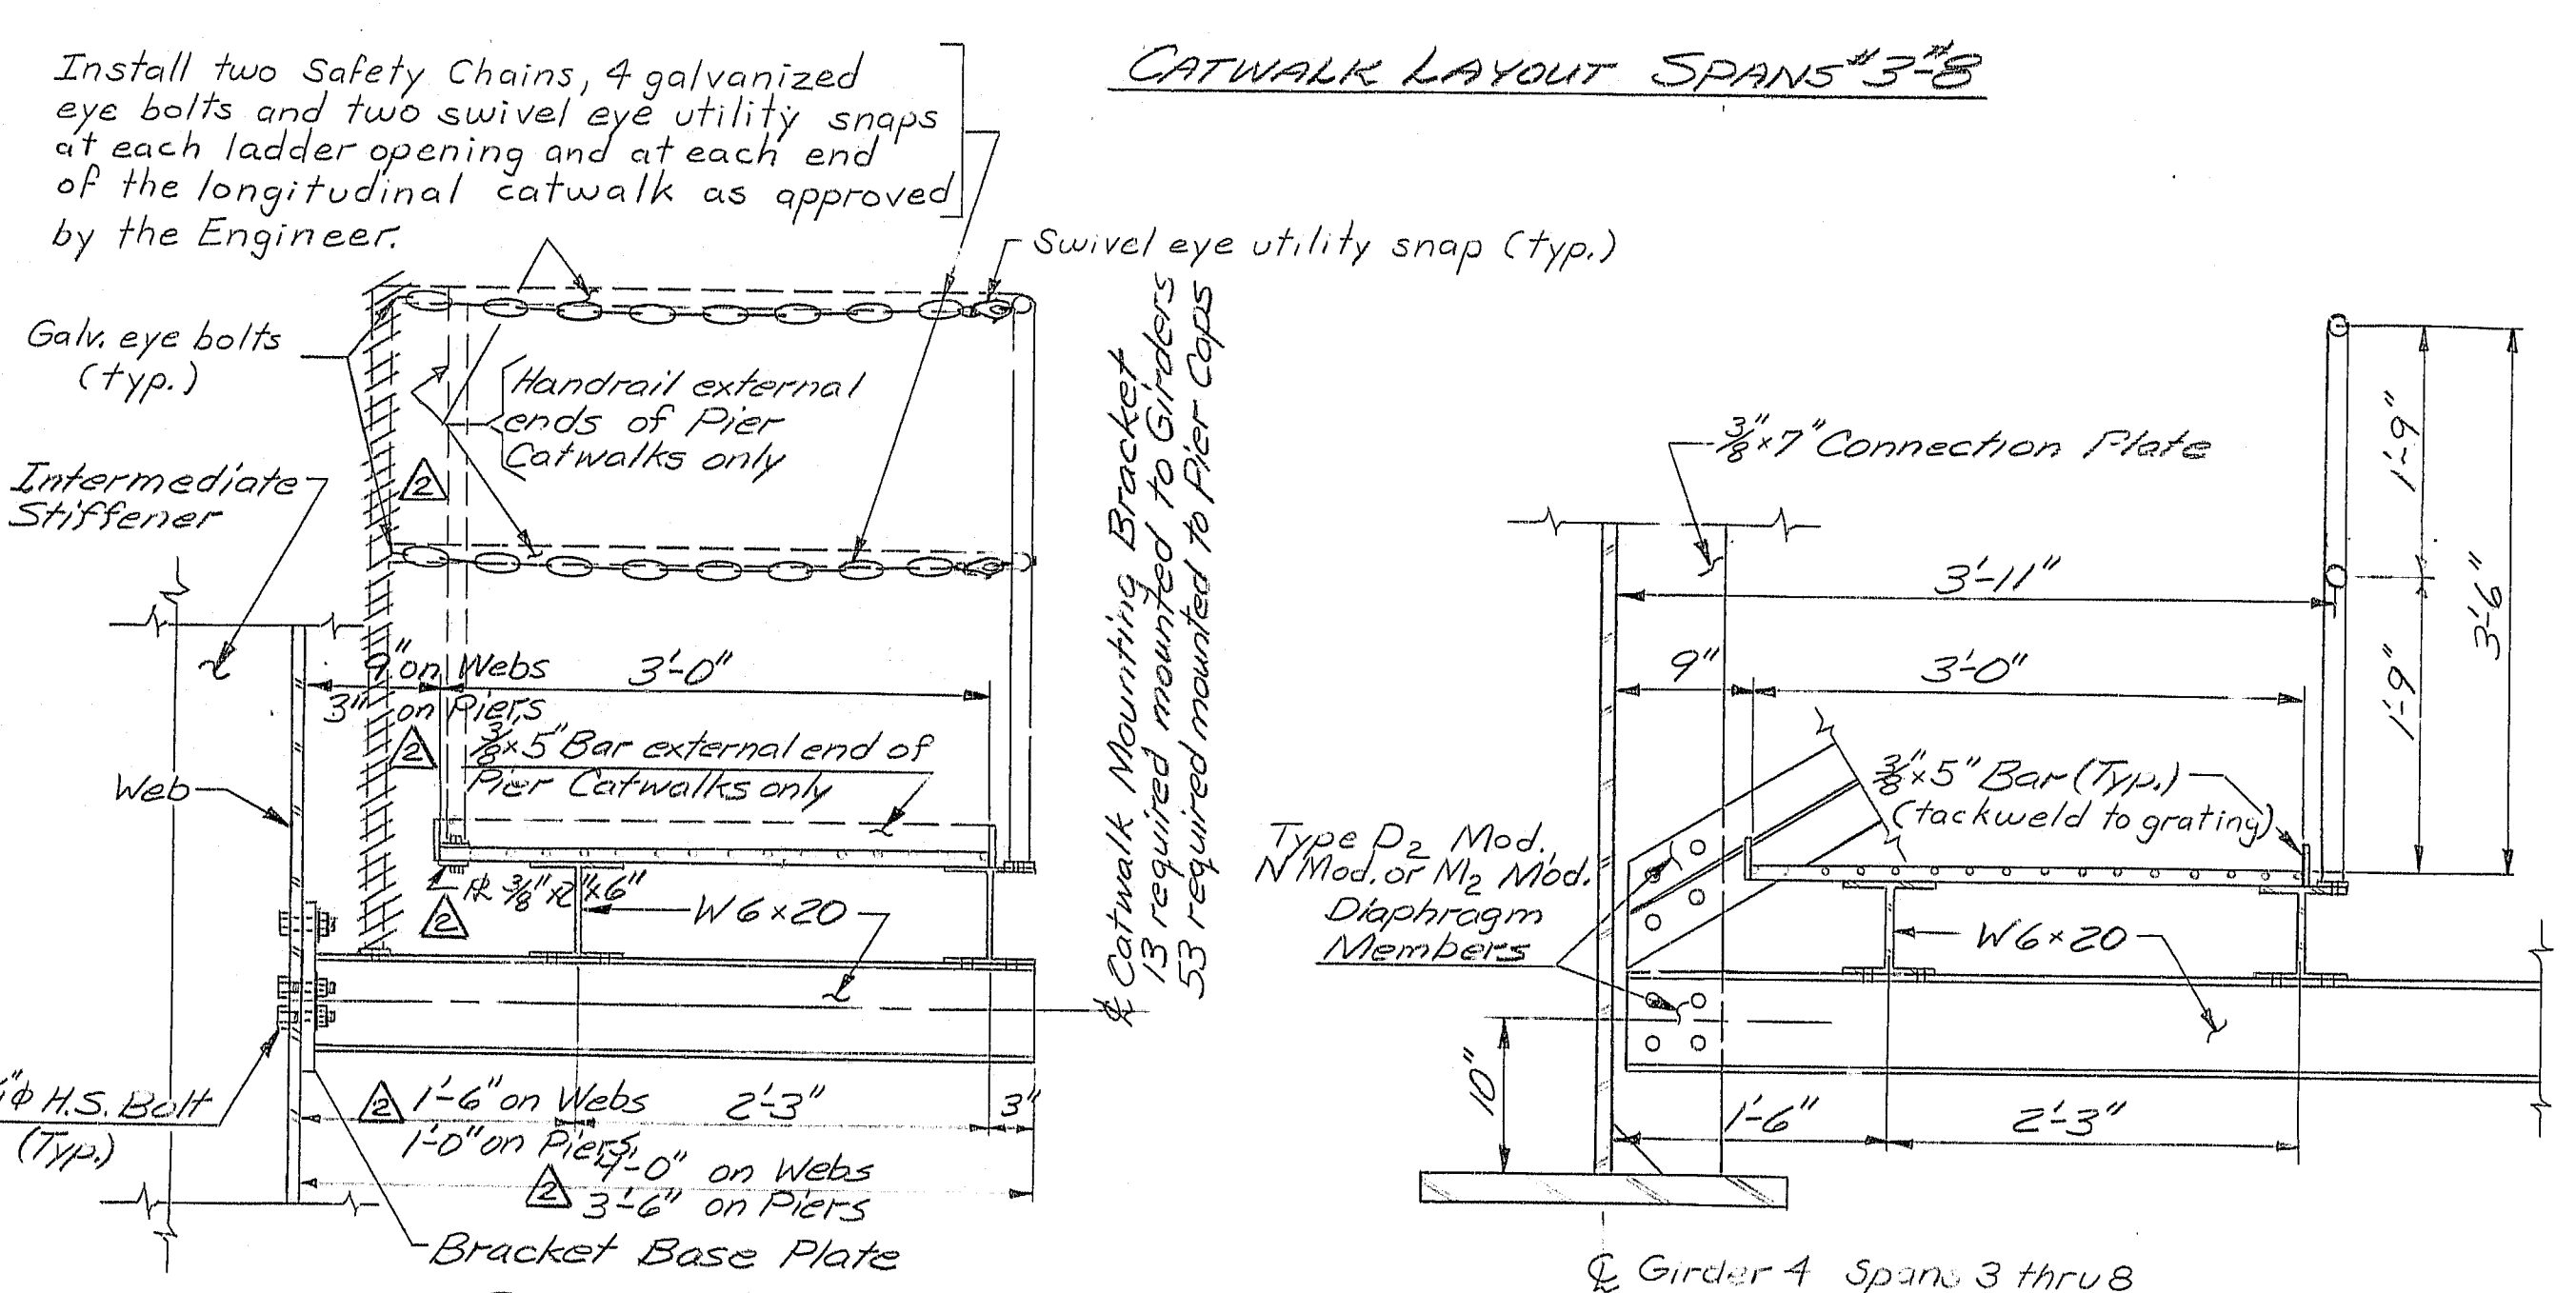 CATWALK LAYOUT SPANS #3-#8
Install two Safety Chains, 4 galvanized
eye bolts and two swivel eye utility snaps
at each ladder opening and at each end
of the longitudinal catwalk as approved
by the Engineer.
Swivel eye utility snap (typ.)
Galv. eye bolts
(typ.)
Handrail external
ends of Pier
Catwalks only
2
Intermediate
Stiffener
9" on Webs
3" on Piers
3'-0"
2
3/8"x5" Bar external end of
Pier Catwalks only
Web
℄ Catwalk Mounting Bracket
13 required mounted to Girders
53 required mounted to Pier Caps
PL 3/8"x2"x6"
2
W6x20
"φ H.S. Bolt
(Typ.)
2
1'-6" on Webs
1'-0" on Piers
2'-3"
3"
2
4'-0" on Webs
3'-6" on Piers
Bracket Base Plate
3/8"x7" Connection Plate
3'-11"
9"
3'-0"
1'-9"
1'-9"
3'-6"
3/8"x5" Bar (Typ.)
(tackweld to grating)
Type D2 Mod.,
N Mod. or M2 Mod.
Diaphragm
Members
W6x20
10"
1'-6"
2'-3"
℄ Girder 4 Spans 3 thru 8